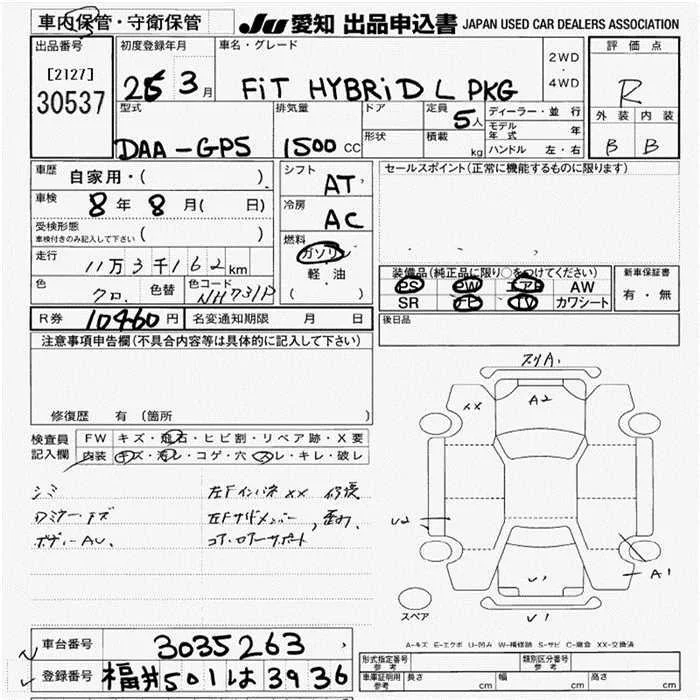 車内保管・守衛保管
JU 愛知 出品申込書 JAPAN USED CAR DEALERS ASSOCIATION
出品番号
[2127]
30537
初度登録年月
3月
車名・グレード
FiT HYBRiD L PKG
2WD
・
4WD
評価点
R
外装 内装
B B
型式
DAA-GP5
排気量
1500 CC
ドア
形状
定員
5人
積載
kg
ディーラー・並行
モデル年式 年
ハンドル 左・右
車歴
自家用・( )
車検
8年8月( 日)
受検形態
車検付きのみ記入して下さい ( )
走行
11万3千162km
色
クロ.
色替
色コード
NH731P
シフト
AT
冷房
AC
燃料
ガソリン
軽・油
( )
セールスポイント(正常に機能するものに限ります)
装備品(純正品に限り○をつけてください)
PS PW エアB AW
SR ナビ TV カワシート
新車保証書
有・無
後日品
R券 10460円 名変通知期限 月 日
注意事項申告欄(不具合内容等は具体的に記入して下さい)
修復歴 有(箇所
検査員
記入欄
FW キズ・飛石・ヒビ割・リペア跡・X要
内装 キズ・汚レ・コゲ・穴・スレ・キレ・破レ
シミ
左Fインパネ XX 修復
左Fサイドメンバー, 歪み,
ボディーAU.
コア・ロアーサポート
スリA1
XX
A2
U2
U1
A1
V1
スペア
A-キズ E-エクボ U-凹み W-補修跡 S-サビ C-腐食 XX-交換済
車台番号
3035263
登録番号
福井501は3936
形式指定番号
参考
類別区分番号
参考
車庫証明用
参考
長さ cm 幅 cm 高さ cm